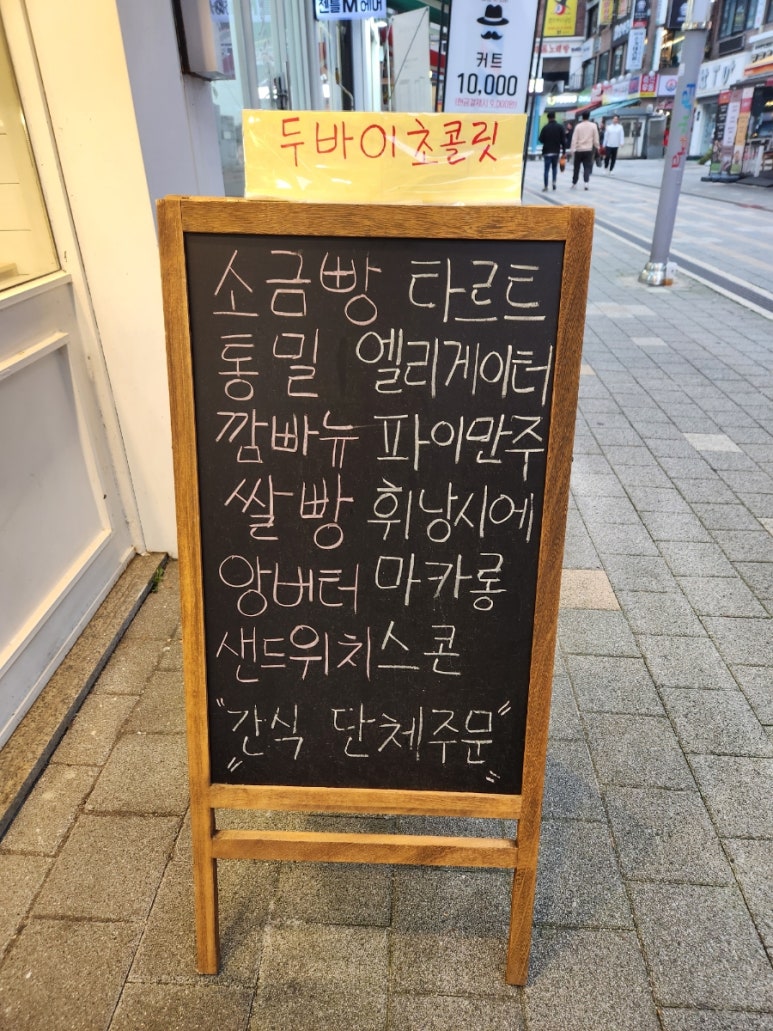 젠틀M헤어
커트
10,000
두바이초콜릿
소금빵 타르트
통밀 엘리게이터
깜빠뉴 파이만주
쌀빵 휘낭시에
앙버터 마카롱
샌드위치 스콘
"간식 단체주문"